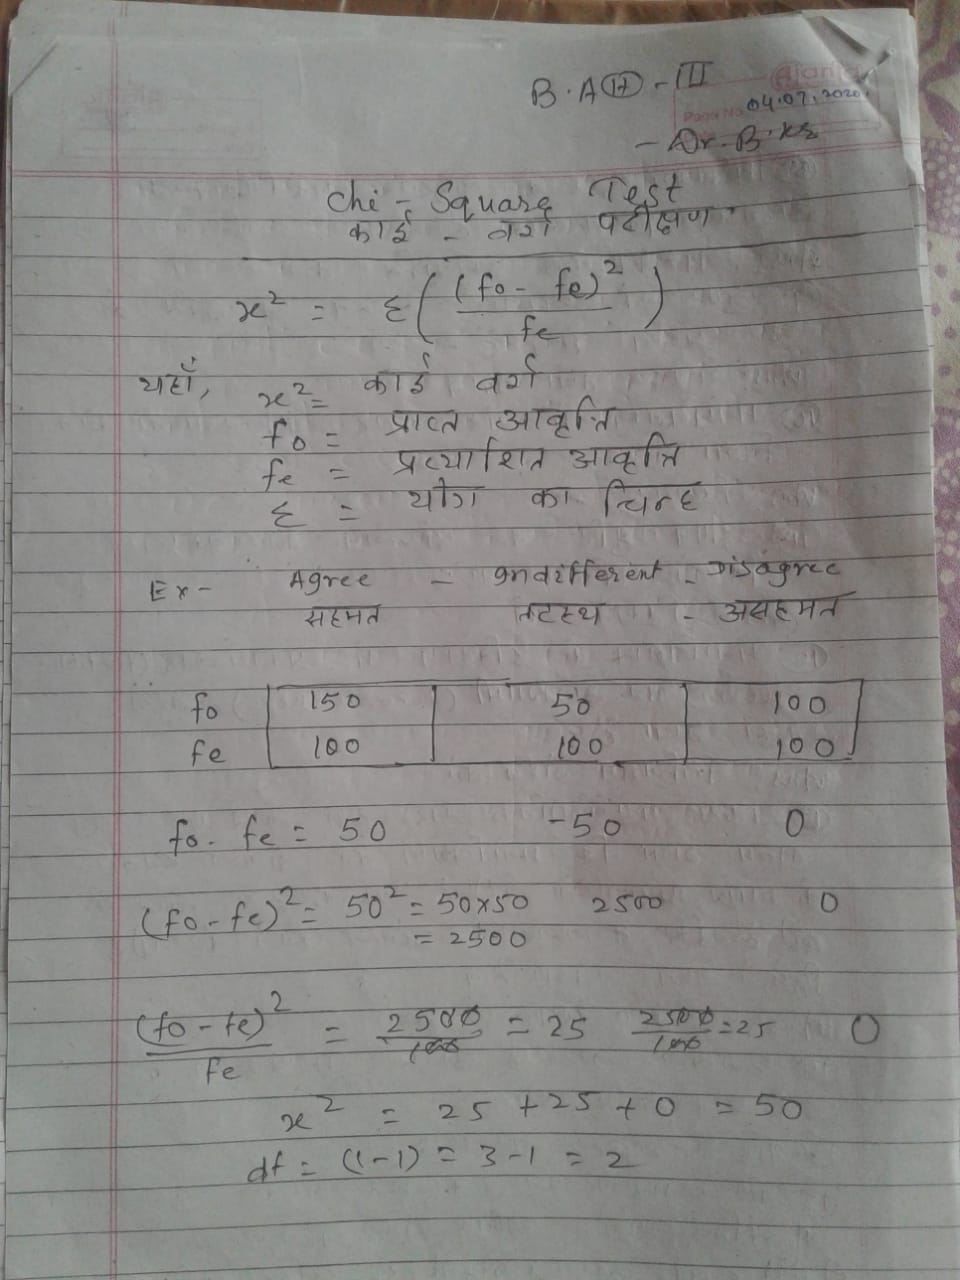 B.A (H) - III
Ajanta
Page No.
04.07.2020
- Dr. B. K
Chi - Square Test
काई - वर्ग परीक्षण
x² = Σ((fo - fe)² / fe)
यहाँ, x² = काई वर्ग
fo = प्राप्त आवृत्ति
fe = प्रत्याशित आवृत्ति
Σ = योग का चिन्ह
Ex - Agree - Indifferent - Disagree
सहमत तटस्थ - असहमत
fo 150 50 100
fe 100 100 100
fo - fe = 50 -50 0
(fo - fe)² = 50² = 50x50 2500 0
= 2500
(fo - fe)² / fe = 2500/100 = 25 2500/100 = 25 0
x² = 25 + 25 + 0 = 50
df = (1-1) = 3-1 = 2